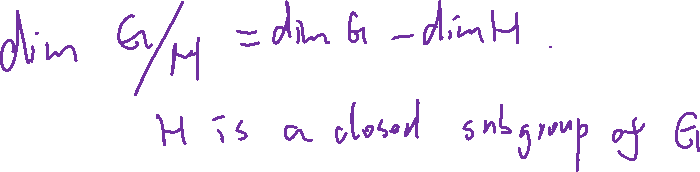 dim G/H = dim G - dim H.
H is a closed subgroup of G